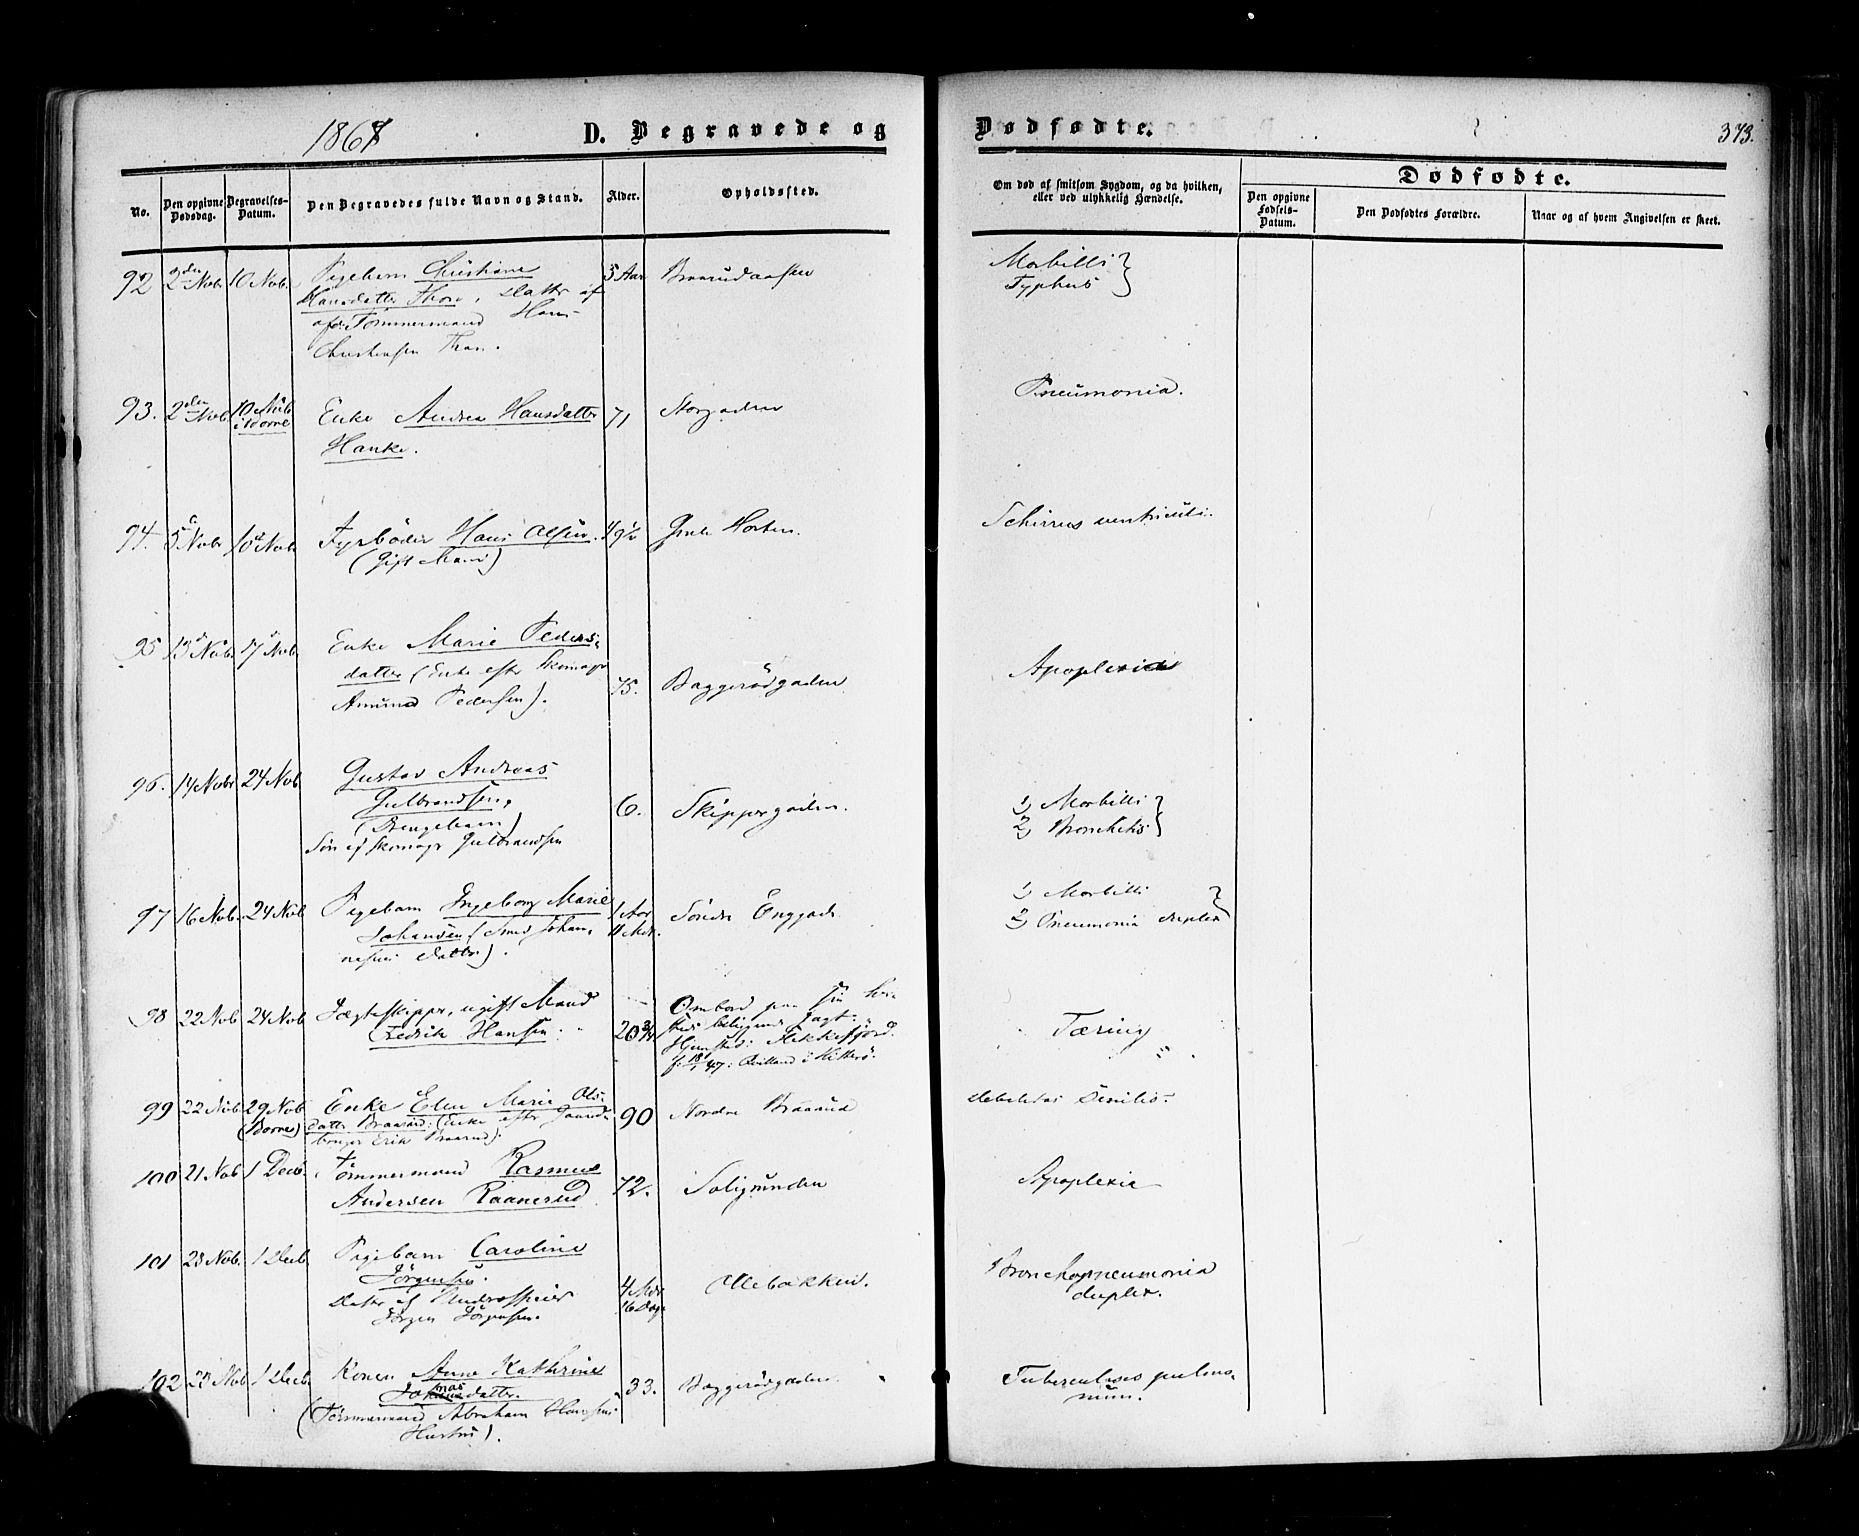 1867
D. Begravede og
Dødfødte.
373.
No.
Den opgivne Dødsdag.
Begravelses-Datum.
Den Begravedes fulde Navn og Stand.
Alder.
Opholdssted.
Om død af smitsom Sygdom, og da hvilken, eller ved ulykkelig Hændelse.
Dødfødte.
Den opgivne Fødsels-Datum.
Den Dødfødtes Forældre.
Naar og af hvem Angivelsen er skeet.
92 2den Nobr 10 Nob. Pigebarn Christiane 5 Aar Braarudaasen Morbilli
Hansdatter Thore, Datter af Typhus
afd: Tømmermand Hans
Christensen Thore.
93. 2den Nob. 10 Nob i Borre Enke Andrea Hansdatter 71 Storgaden Pneumonia.
Hanke.
94. 5 Nobr 10 Nobr Fyrbøder Hans Olsen. 49½ Horten. Schirrus ventriculi.
(Gift Mand)
95 13 Nobr. 17 Nob. Enke Marie Peders-
datter (Enke efter Skomager 75. Baggerødgaden Apoplexia
Amund Pedersen).
96. 14 Nobr 24 Nob. Gustav Andreas
Gulbrandsen, 6. Skippergaden. 1) Morbilli
(Drengebarn) 2) Bronchitis
Søn af Skomager Gulbrandsen
97 16 Nob. 24 Nob Pigebarn Ingeborg Marie 1 Aar Søndre Enggade 1) Morbilli
Johansen (Smed Johan- 11 Mdr. 2) Pneumonia duplex
nesens Datter).
98 22 Nob 24 Nob Jægteskipper, ugift Mand Ombord paa sin
Fredrik Hansen 20¾ beligend. Jagt: Tæring
Flekkefjord.
i Hitterø.
99 22 Nob. 29 Nob (Borre) Enke Elen Marie Ols- 90 Nordre Braarud debilitas Senilis.
datter Braarud: (Enke efter Gaard-
bruger Erik Braarud).
100 21 Nob 1 Decb. Tømmermand Rasmus 72. Soligrunden Apoplexie
Andersen Raanerud
101 23 Nob. 1 Decb. Pigebarn Caroline Bronchopneumonia
Jørgensen. 4 Mdr Ollebakken. duplex.
Datter af Underofficier 16 Dage
Jørgen Jørgensen.
102 23 Nob 1 Decb. Konen Anne Kathrine 33. Baggerødgaden. Tuberculoses pulmo-
datter. num.
(Tømmermand Abraham Hansens
Hustru).